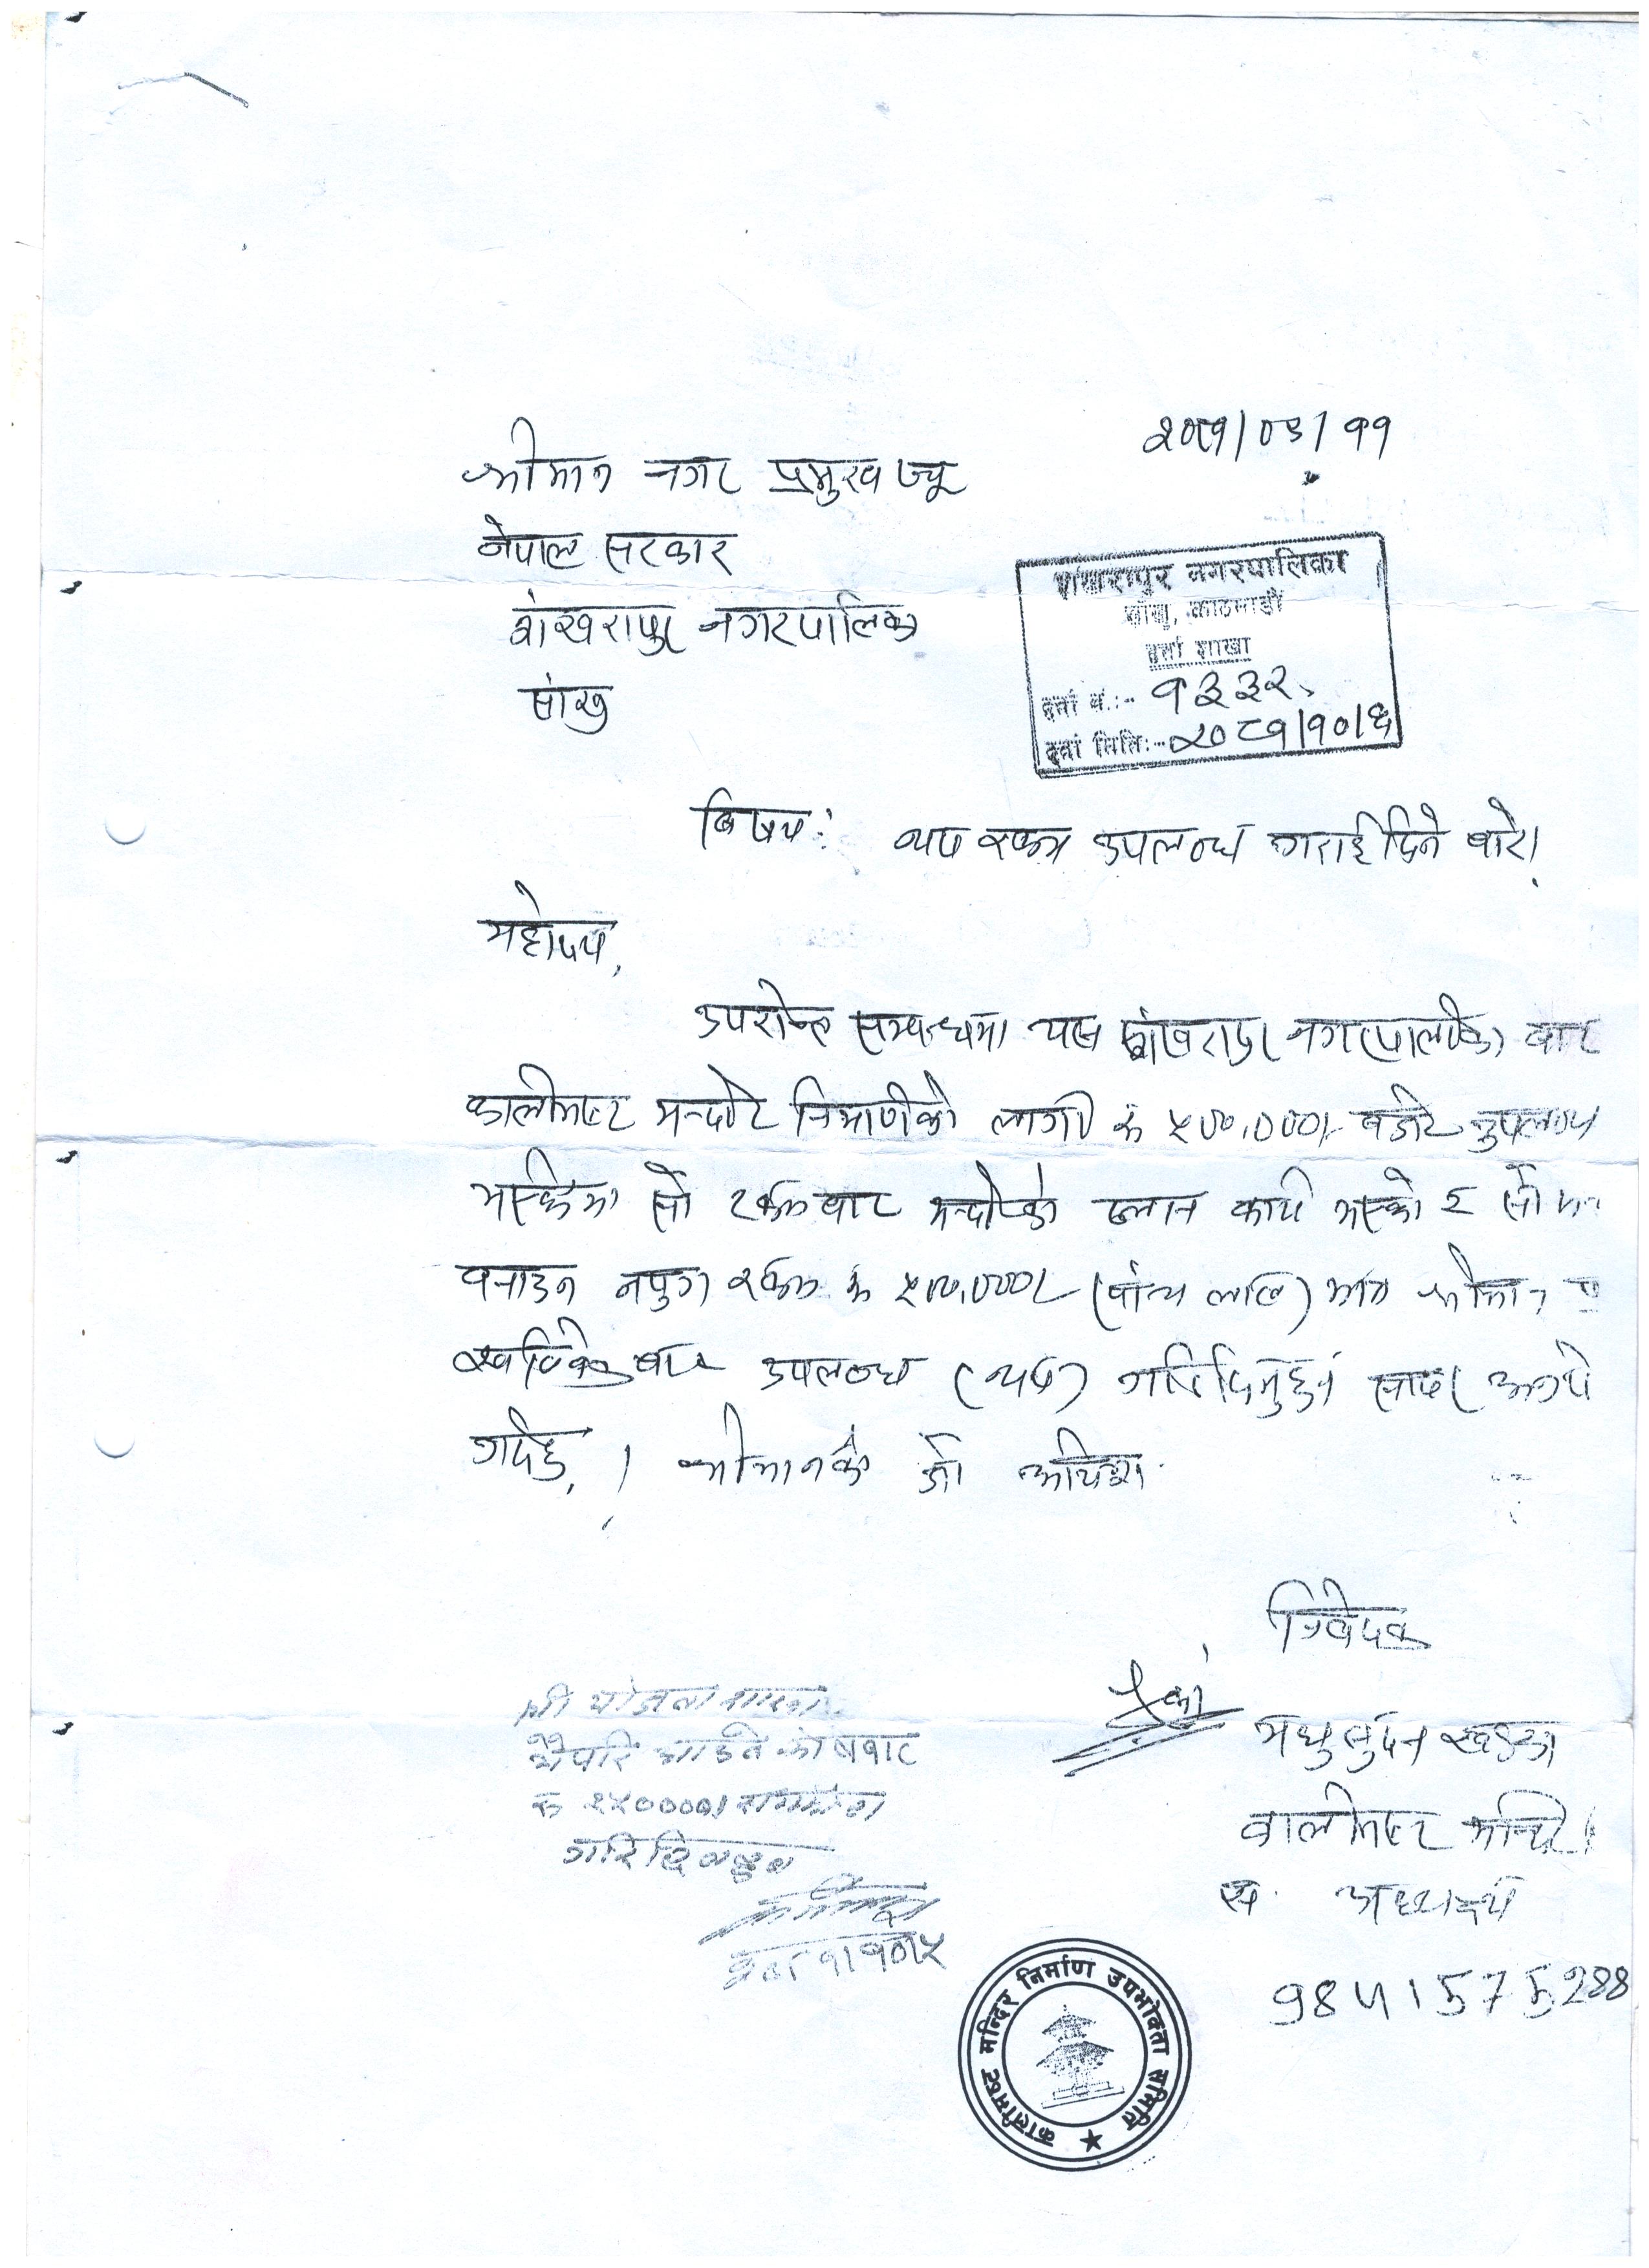 २०८१/०९/११
श्रीमान नगर प्रमुख ज्यू
नेपाल सरकार
शंखरापुर नगरपालिका
सांखु
शंखरापुर नगरपालिका
साँखु, काठमाडौं
दर्ता शाखा
दर्ता नं.:- १३३२
दर्ता मिति:- २०८१/१०/६
विषय: थप रकम उपलब्ध गराईदिने बारे।
महोदय,
उपरोक्त सम्बन्धमा यस शंखरापुर नगरपालीका बाट
कालीमाष्ट मन्दीर निमार्णको लागी रु ५००,०००/- बजेट उपलब्ध
भएकोमा सो रकमबाट मन्दीरको ढलान कार्य भएको र सो
बनाउन नपुग रकम रु ५००,०००/- (पाँच लाख) मात्र श्रीमान
स्वविवेकबाट उपलब्ध (थप) गरिदिनुहुन सादर अनुरोध
गर्दछु, । श्रीमानको जो आदेश
निवेदक
मधुसुदन खड्का
कालीमाष्ट मन्दिर
अध्यक्ष
9841575288
श्री योजना शाखा
भैपरि आउने कोषबाट
रु २५००००/
गरिदिनुहुन
कालीमाष्ट मन्दिर निर्माण उपभोक्ता समिति